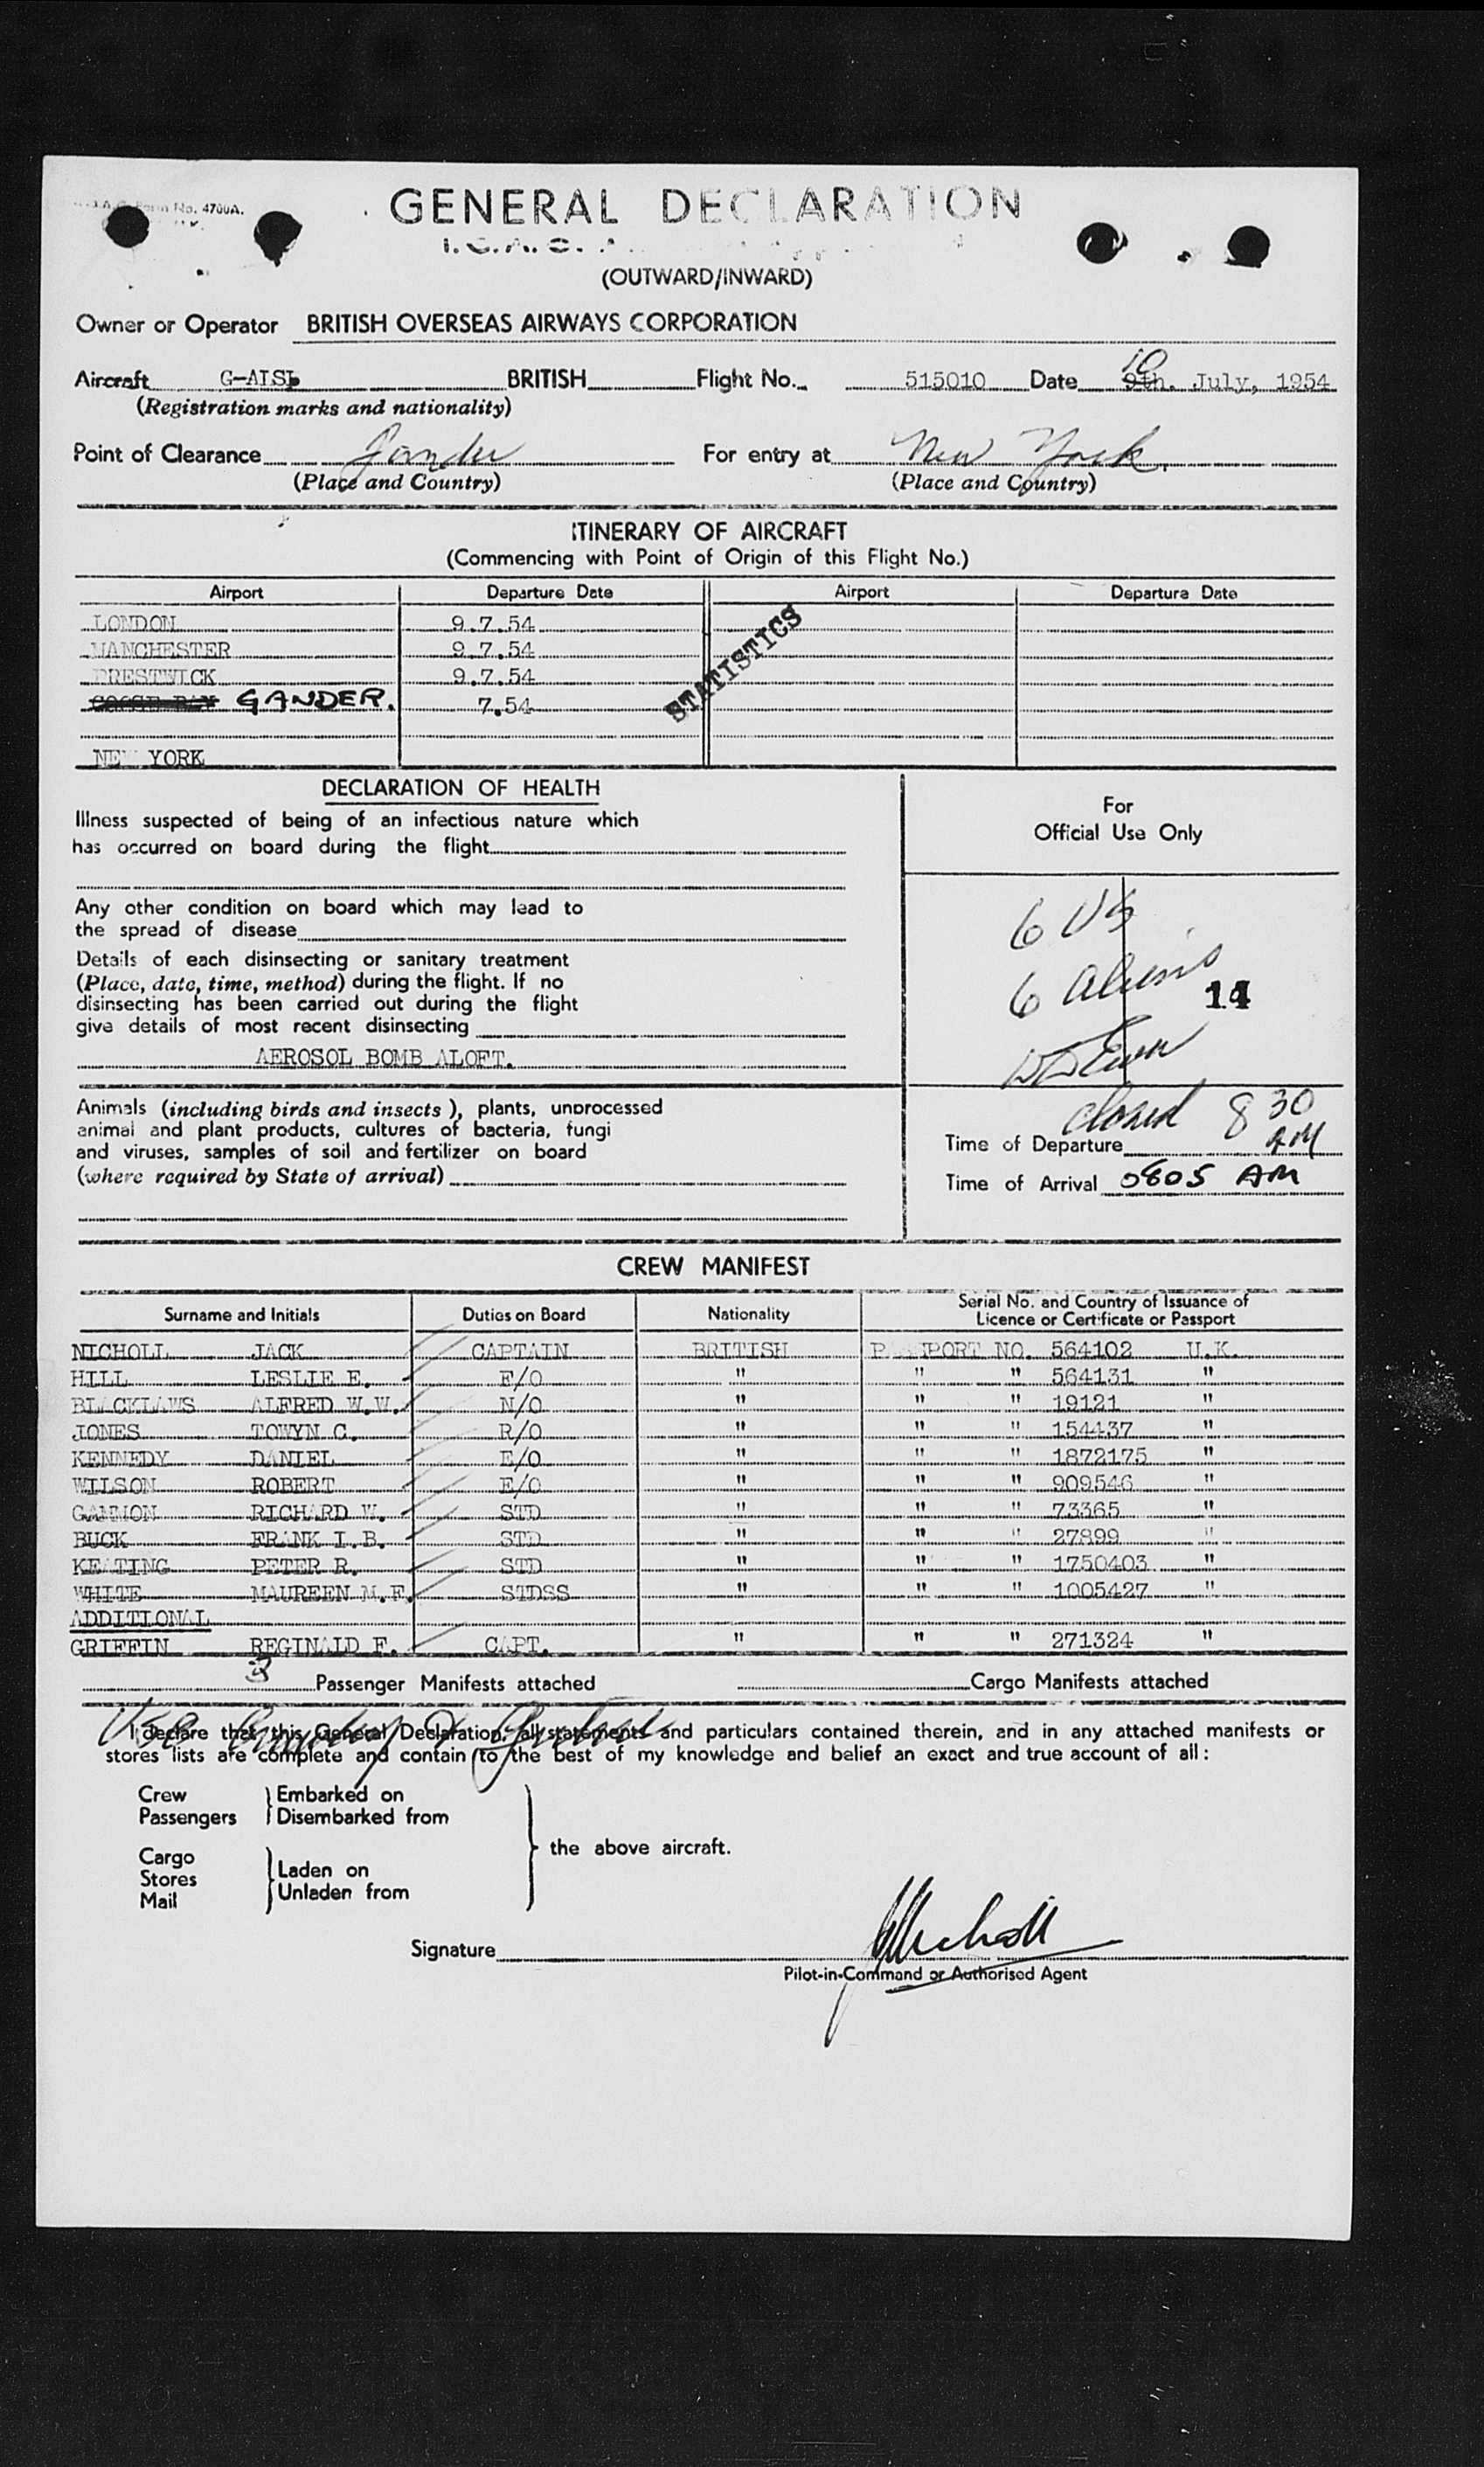 Form No. 4700A.
GENERAL DECLARATION
I.C.A.O.
(OUTWARD/INWARD)
Owner or Operator BRITISH OVERSEAS AIRWAYS CORPORATION
Aircraft BRITISH Flight No. 515010 Date 9th. 10 July, 1954
(Registration marks and nationality)
Point of Clearance Gander For entry at New York.
(Place and Country) (Place and Country)
ITINERARY OF AIRCRAFT
(Commencing with Point of Origin of this Flight No.)
Airport Departure Date Airport Departure Date
LONDON 9.7.54
MANCHESTER 9.7.54
PRESTWICK 9.7.54
GOOSE BAY GANDER. 7.54
NEW YORK
STATISTICS
DECLARATION OF HEALTH
Illness suspected of being of an infectious nature which
has occurred on board during the flight
Any other condition on board which may lead to
the spread of disease
Details of each disinsecting or sanitary treatment
(Place, date, time, method) during the flight. If no
disinsecting has been carried out during the flight
give details of most recent disinsecting
AEROSOL BOMB ALOFT.
Animals (including birds and insects), plants, unprocessed
animal and plant products, cultures of bacteria, fungi
and viruses, samples of soil and fertilizer on board
(where required by State of arrival)
For
Official Use Only
6 US
6 aliens
14
closed 8 30
Time of Departure AM
Time of Arrival 0805 AM
CREW MANIFEST
Surname and Initials Duties on Board Nationality Serial No. and Country of Issuance of
Licence or Certificate or Passport
NICHOLL JACK CAPTAIN BRITISH PASSPORT NO. 564102 U.K.
HILL LESLIE E. F/O " " " 564131 "
BLACKLAWS ALFRED W.W. N/O " " " 19121 "
JONES TOWYN C. R/O " " " 154437 "
KENNEDY DANIEL E/O " " " 1872175 "
WILSON ROBERT E/O " " " 909546 "
GAMMON RICHARD W. STD " " " 73365 "
BUCK FRANK I.B. STD " " " 27899 "
KEATING PETER R. STD " " " 1750403 "
WHITE MAUREEN M.F. STDSS " " " 1005427 "
ADDITIONAL
GRIFFIN REGINALD F. CAPT. " " " 271324 "
3 Passenger Manifests attached Cargo Manifests attached
I declare that this General Declaration, all statements and particulars contained therein, and in any attached manifests or
stores lists are complete and contain to the best of my knowledge and belief an exact and true account of all:
Crew Embarked on
Passengers Disembarked from
the above aircraft.
Cargo
Stores Laden on
Mail Unladen from
Signature JNicholl
Pilot-in-Command or Authorised Agent